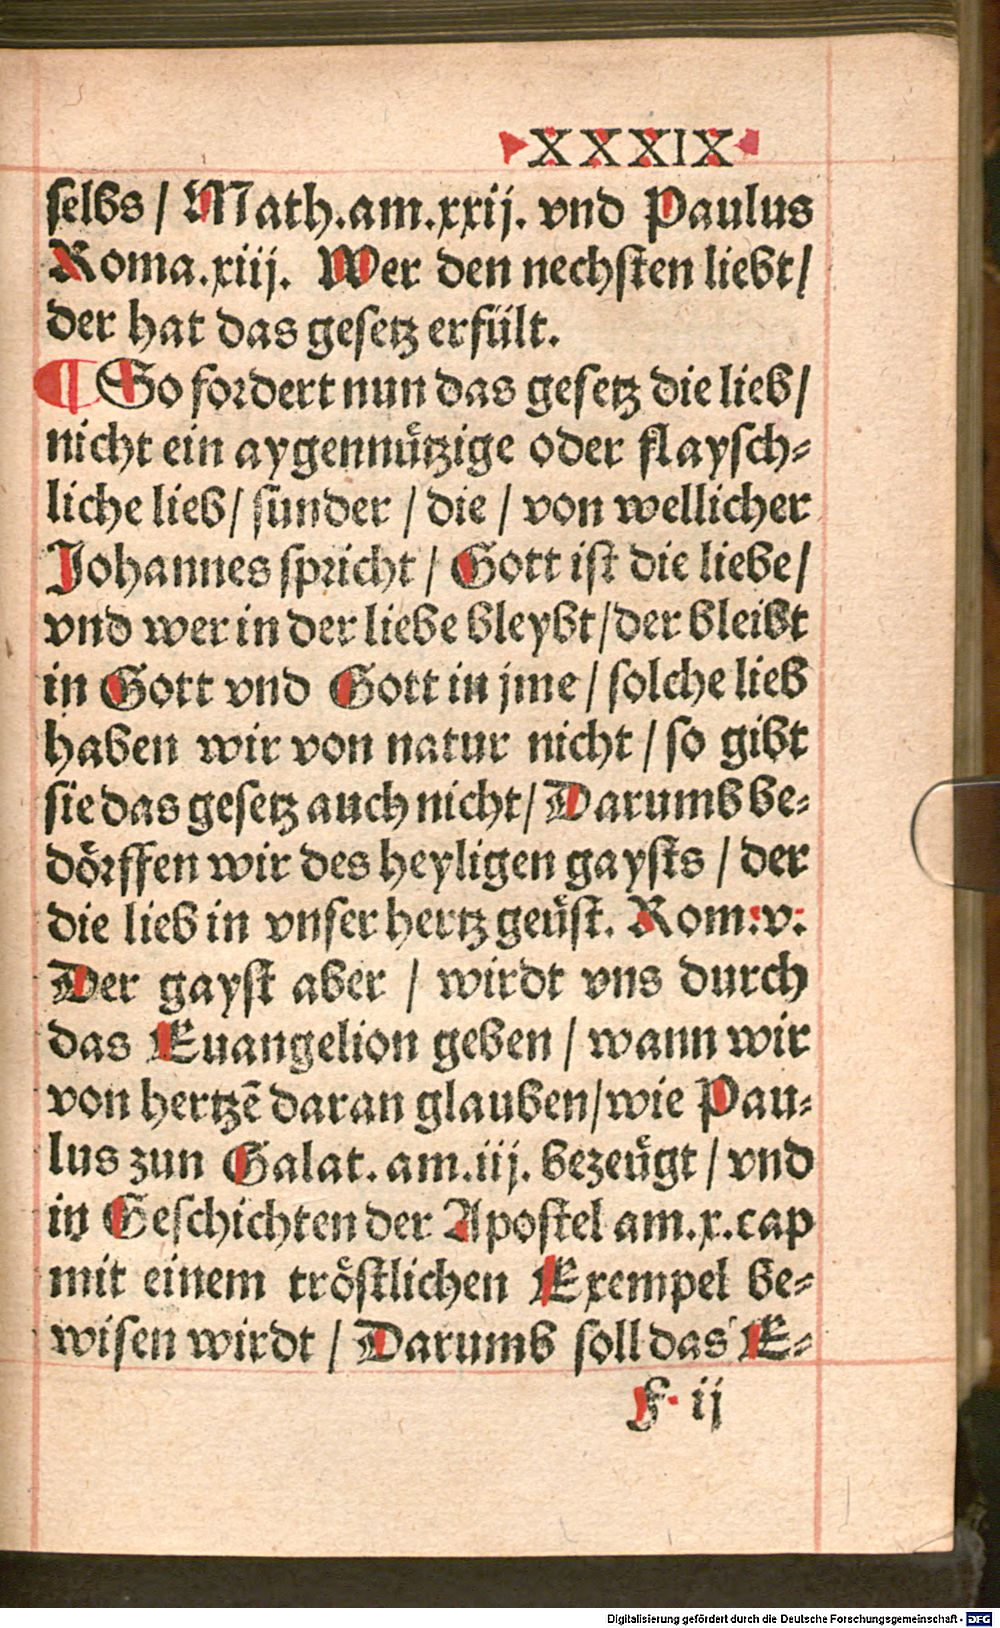 XXXIX
selbs / Math.am.xxij. vnd Paulus
Roma.xiij. Wer den nechsten liebt /
der hat das gesetz erfült.
¶ So fordert nun das gesetz die lieb /
nicht ein aygennützige oder flaysch-
liche lieb / sunder / die / von wellicher
Johannes spricht / Gott ist die liebe /
vnd wer in der liebe bleybt / der bleibt
in Gott vnd Gott in jme / solche lieb
haben wir von natur nicht / so gibt
sie das gesetz auch nicht / Darumb be-
dörffen wir des heyligen gaysts / der
die lieb in vnser hertz geüst. Rom: v:
Der gayst aber / wirdt vns durch
das Euangelion geben / wann wir
von hertzē daran glauben / wie Pau-
lus zun Galat. am.iij. bezeügt / vnd
in Geschichten der Apostel am.x.cap
mit einem tröstlichen Exempel be-
wisen wirdt / Darumb soll das E-
F ij
Digitalisierung gefördert durch die Deutsche Forschungsgemeinschaft - DFG